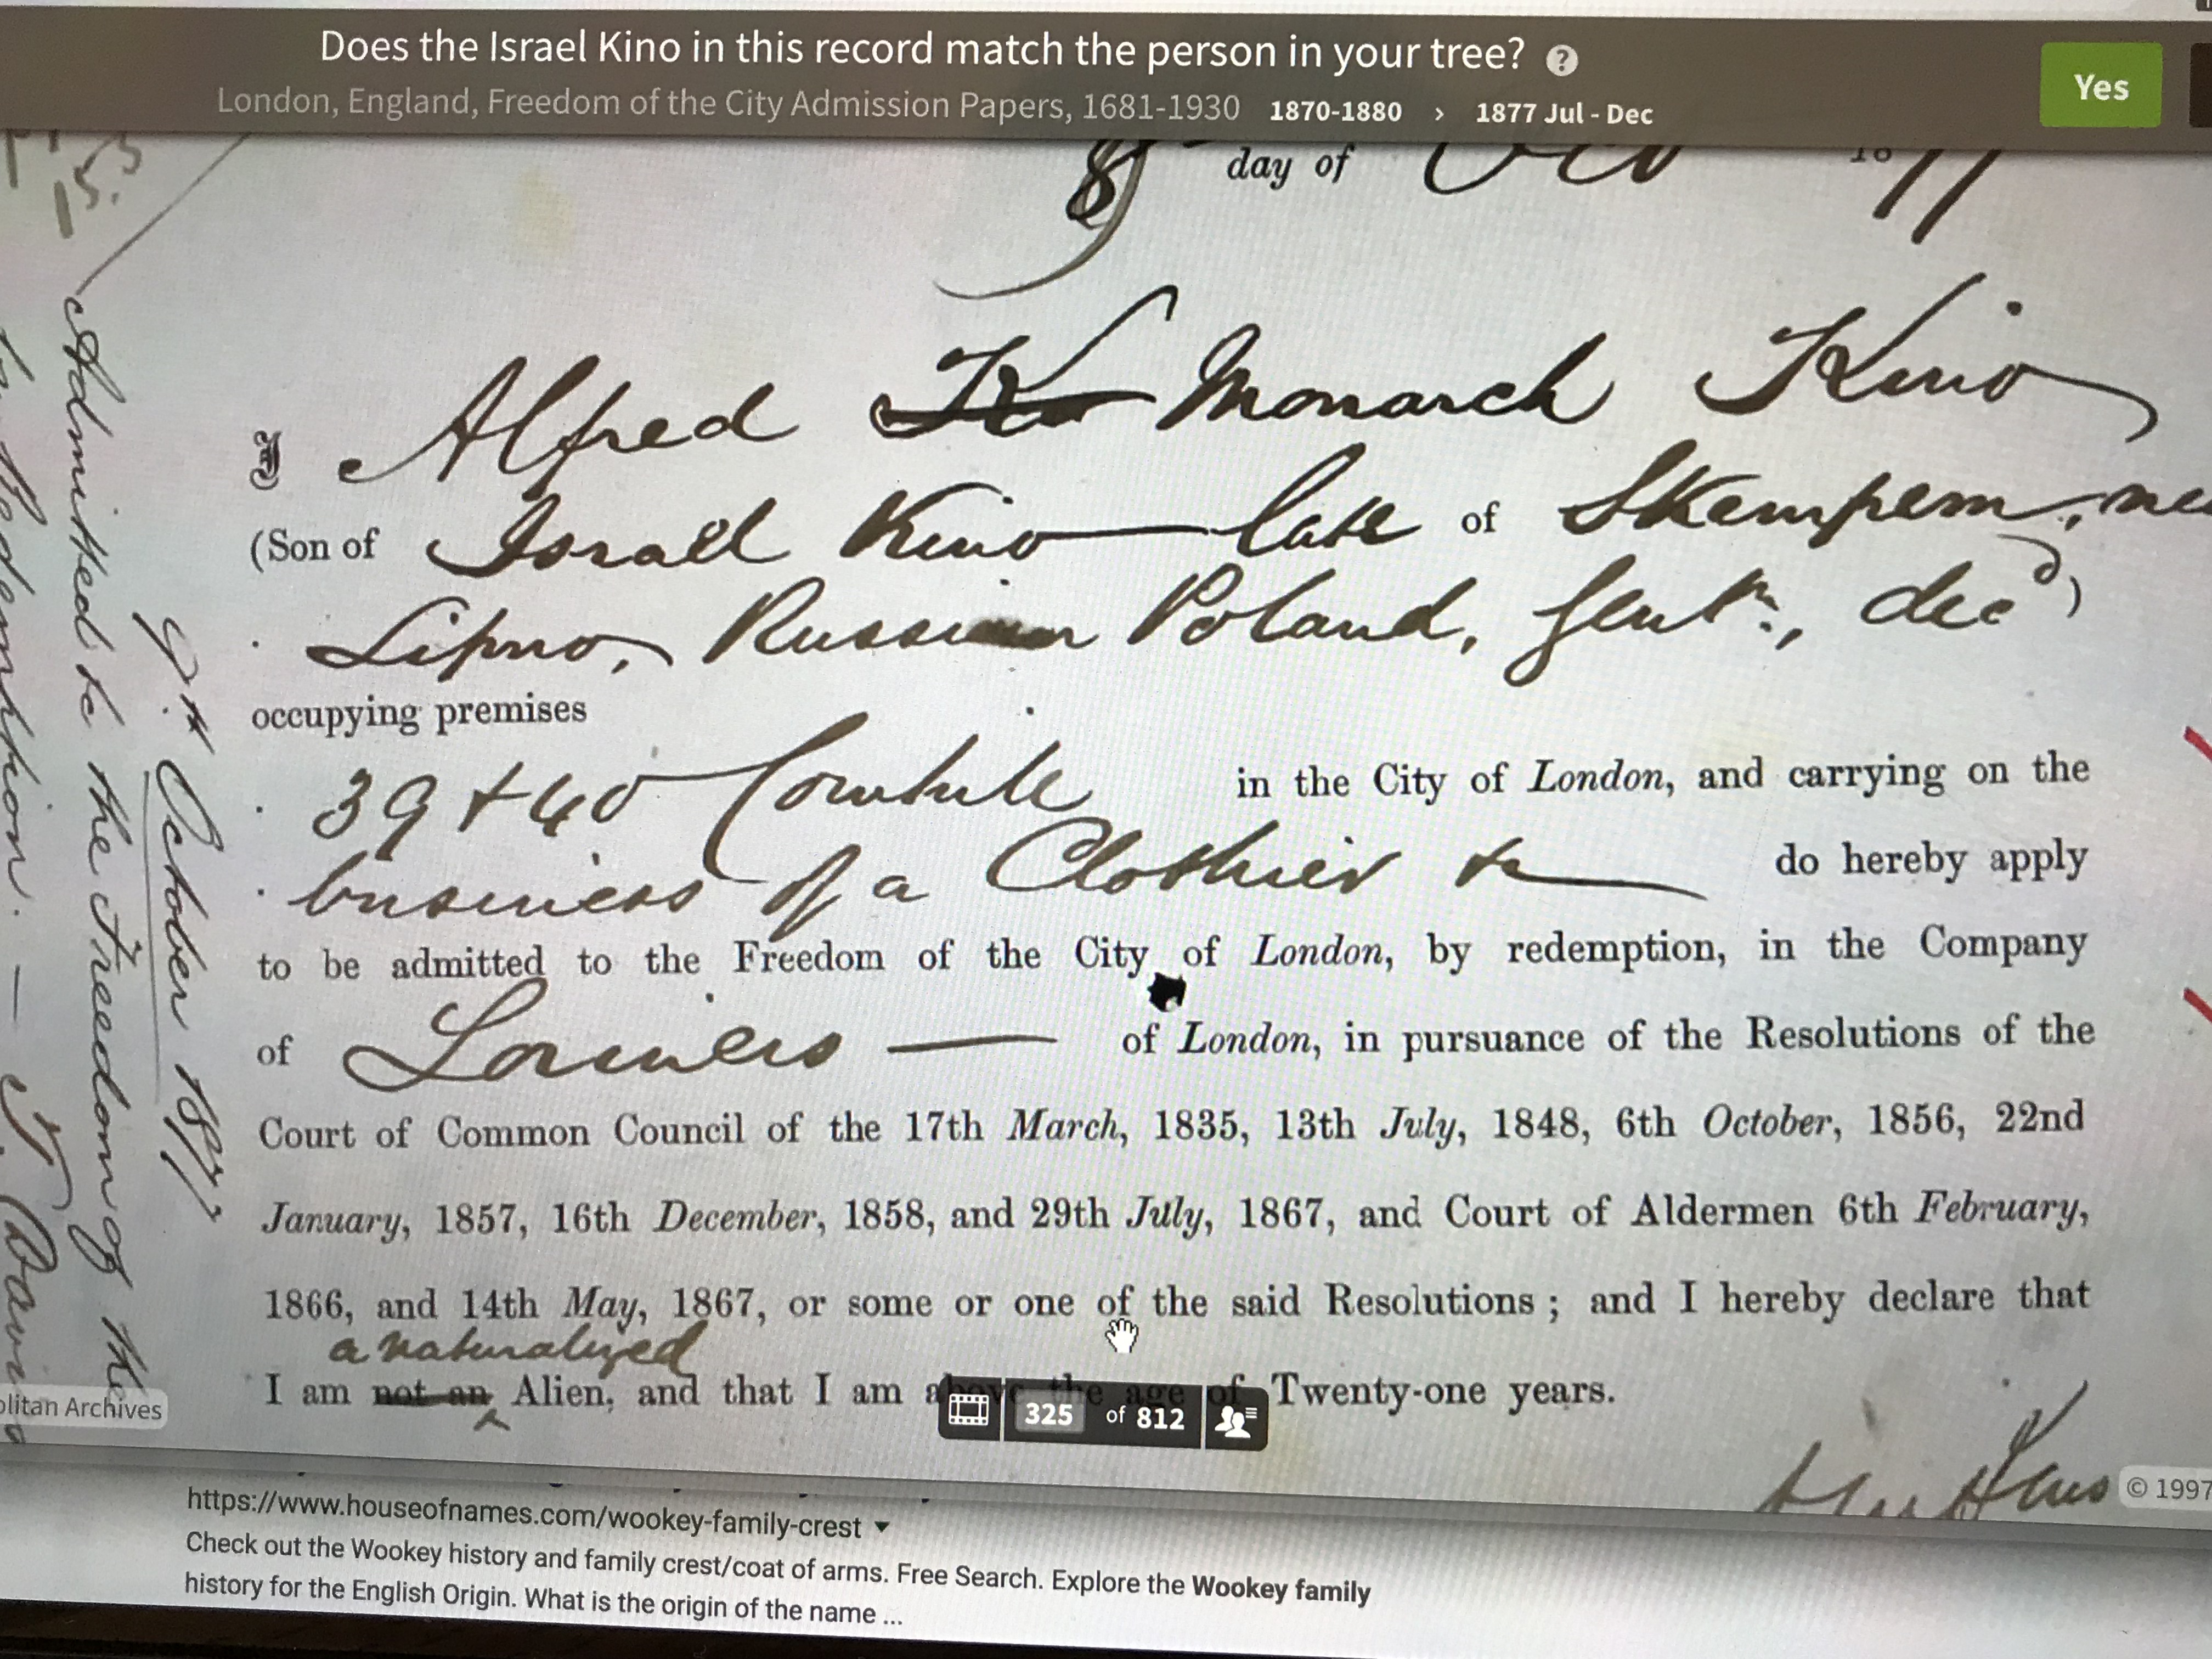 Does the Israel Kino in this record match the person in your tree? ?
Yes
London, England, Freedom of the City Admission Papers, 1681-1930 1870-1880 > 1877 Jul - Dec
8 day of Oct 1877
I Alfred Monarch Kino
(Son of Israel Kino late of Skempem, nea
Lipno, Russian Poland, Gentn., decd)
occupying premises
39 + 40 Cornhill in the City of London, and carrying on the
business of a Clothier &c do hereby apply
to be admitted to the Freedom of the City of London, by redemption, in the Company
of Loriners — of London, in pursuance of the Resolutions of the
Court of Common Council of the 17th March, 1835, 13th July, 1848, 6th October, 1856, 22nd
January, 1857, 16th December, 1858, and 29th July, 1867, and Court of Aldermen 6th February,
1866, and 14th May, 1867, or some or one of the said Resolutions; and I hereby declare that
a naturalized
I am not an Alien, and that I am above the age of Twenty-one years.
Admitted to the Freedom of the
by Redemption. —
9th October 1877
olitan Archives
325 of 812
© 1997
https://www.houseofnames.com/wookey-family-crest
Check out the Wookey history and family crest/coat of arms. Free Search. Explore the Wookey family
history for the English Origin. What is the origin of the name ...